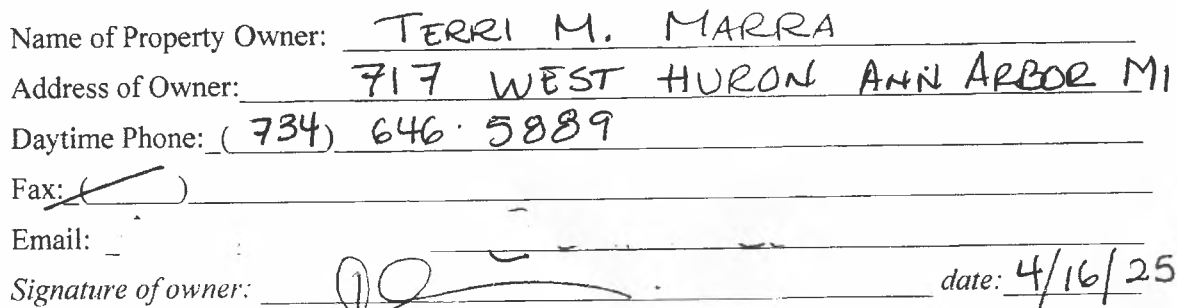 Name of Property Owner: TERRI M. MARRA
Address of Owner: 717 WEST HURON ANN ARBOR MI
Daytime Phone: (734) 646·5889
Fax: ( )
Email:
Signature of owner: date: 4/16/25